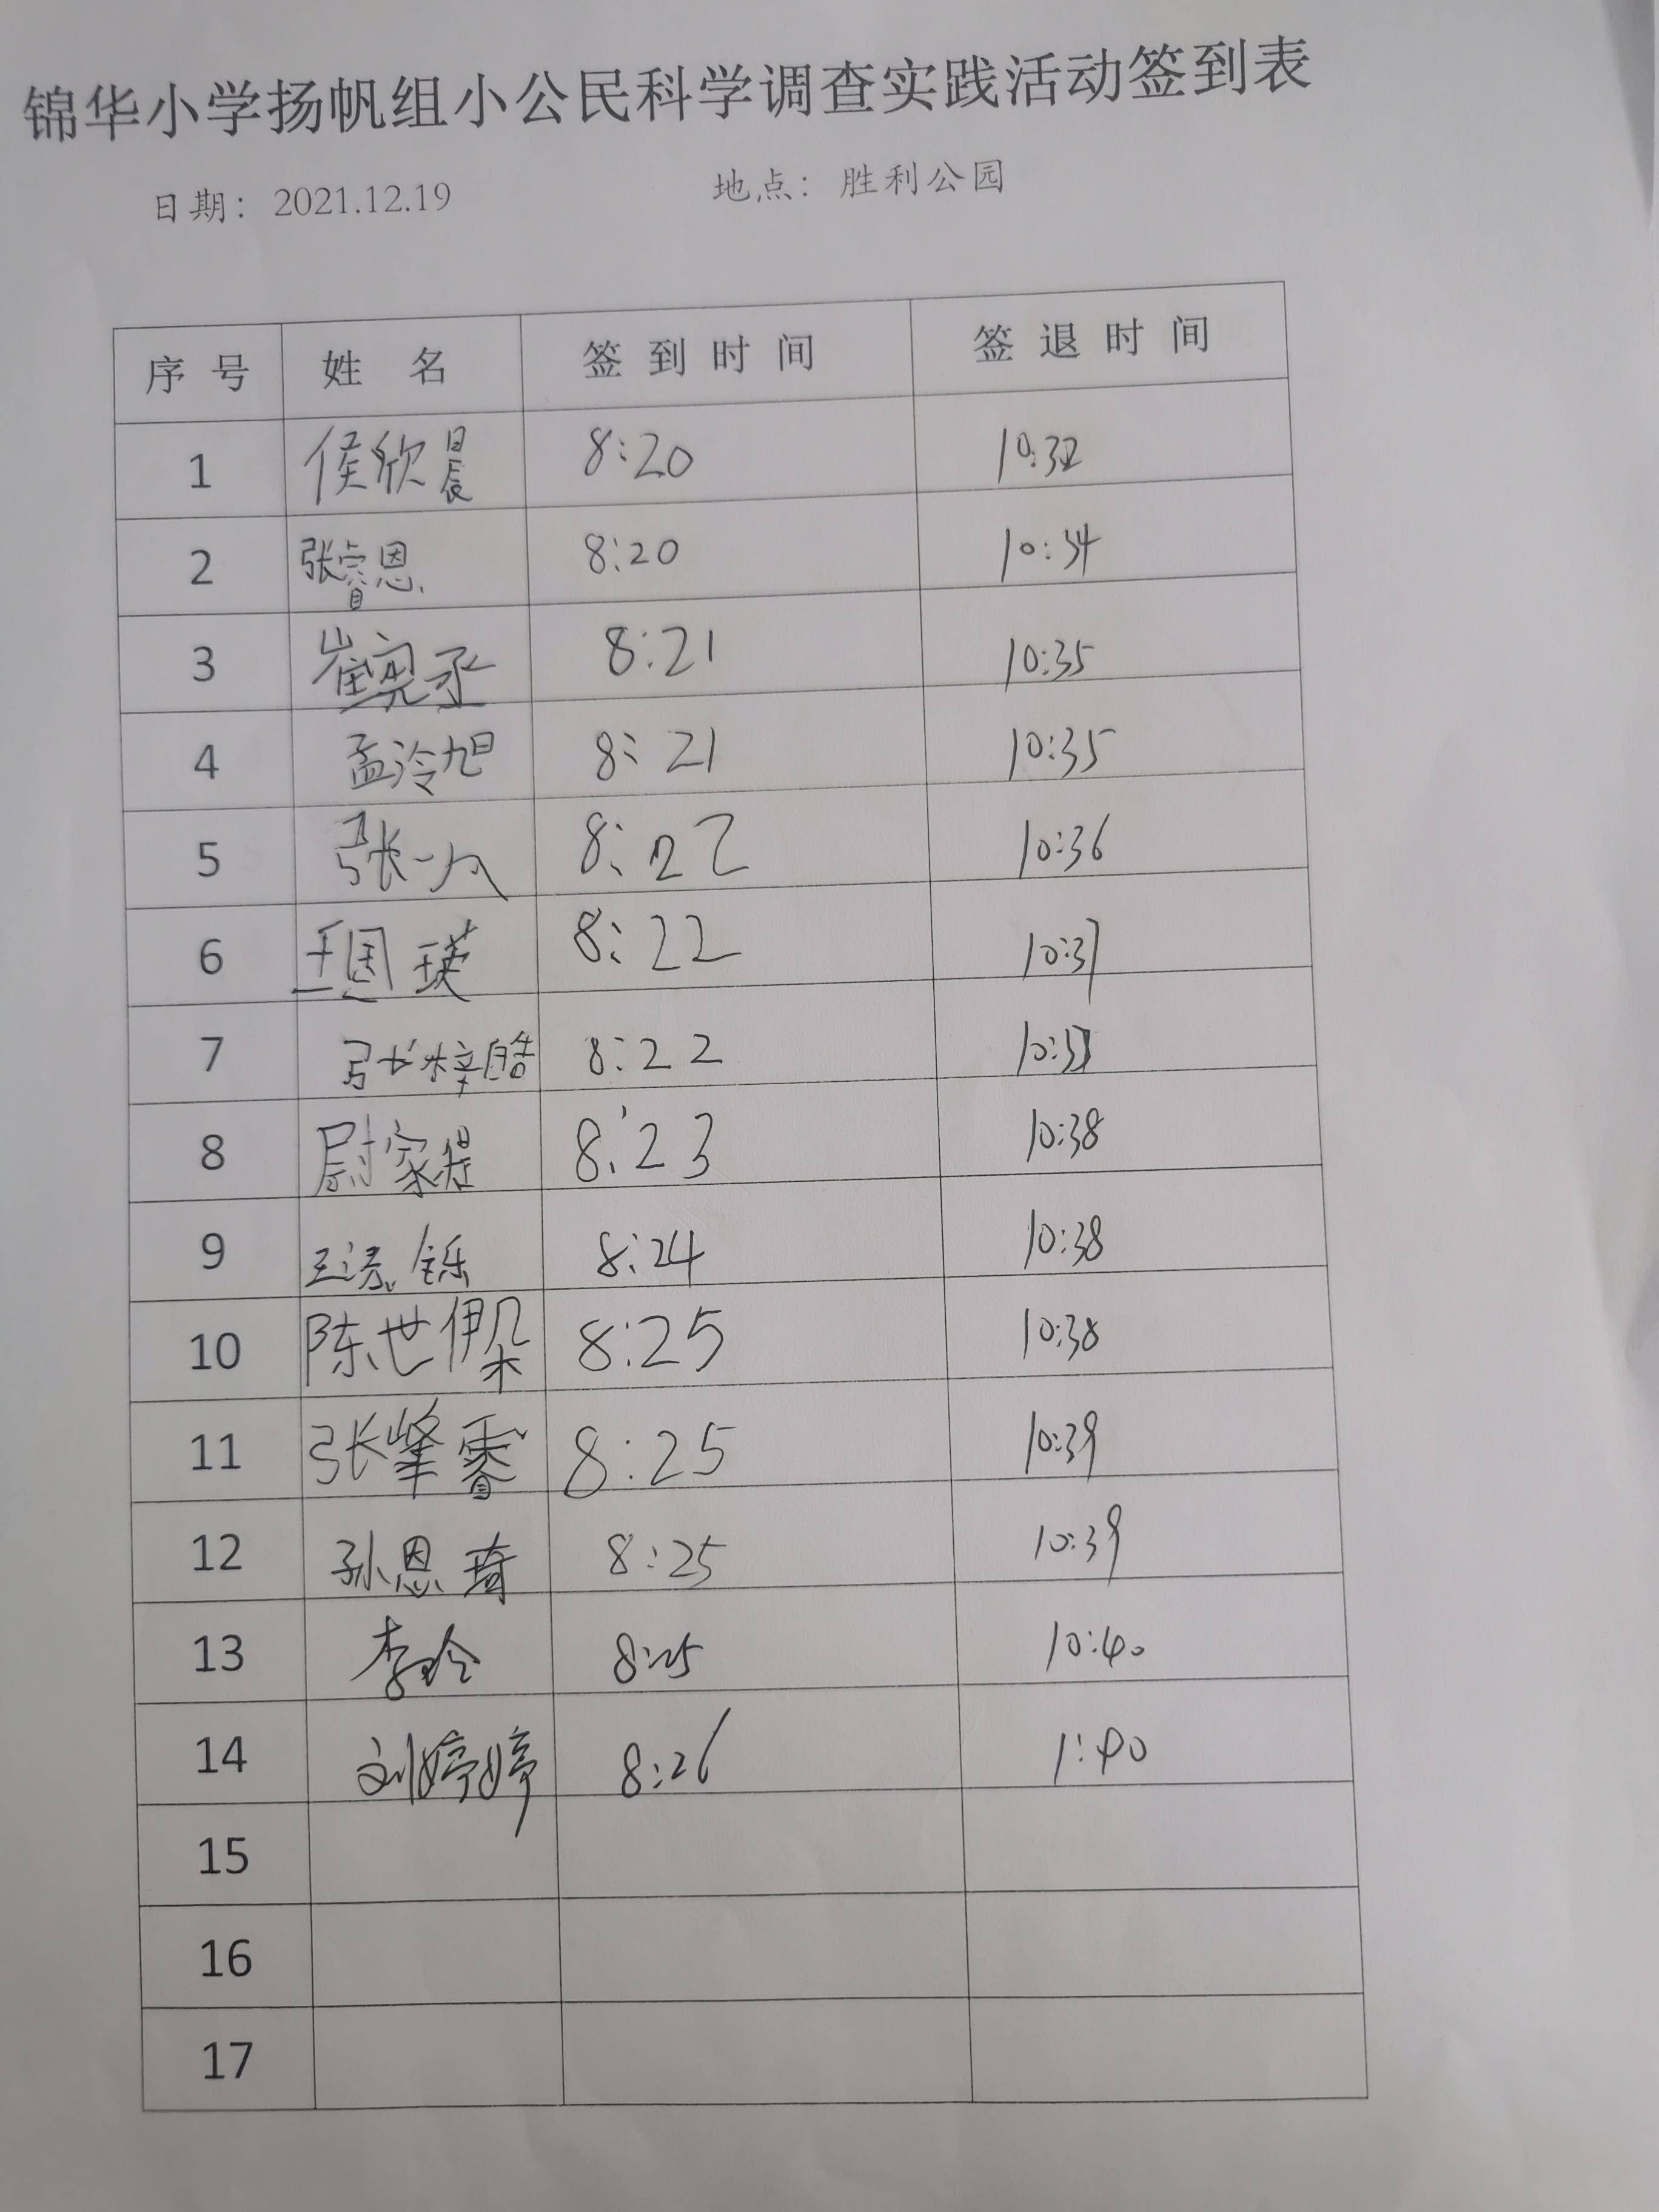 锦华小学扬帆组小公民科学调查实践活动签到表
日期：2021.12.19 地点：胜利公园
序号 姓名 签到时间 签退时间
1 侯欣晨 8:20 10:32
2 张睿恩 8:20 10:34
3 崔 8:21 10:35
4 孟泠旭 8:21 10:35
5 张一 8:22 10:36
6 王国瑛 8:22 10:37
7 张梓皓 8:22
8 尉家煜 8:23 10:38
9 王 铄 8:24 10:38
10 陈世伊朵 8:25 10:38
11 张峯睿 8:25 10:39
12 孙恩琦 8:25 10:39
13 李玲 8:25 10:40
14 刘婷婷 8:26 1:40
15
16
17